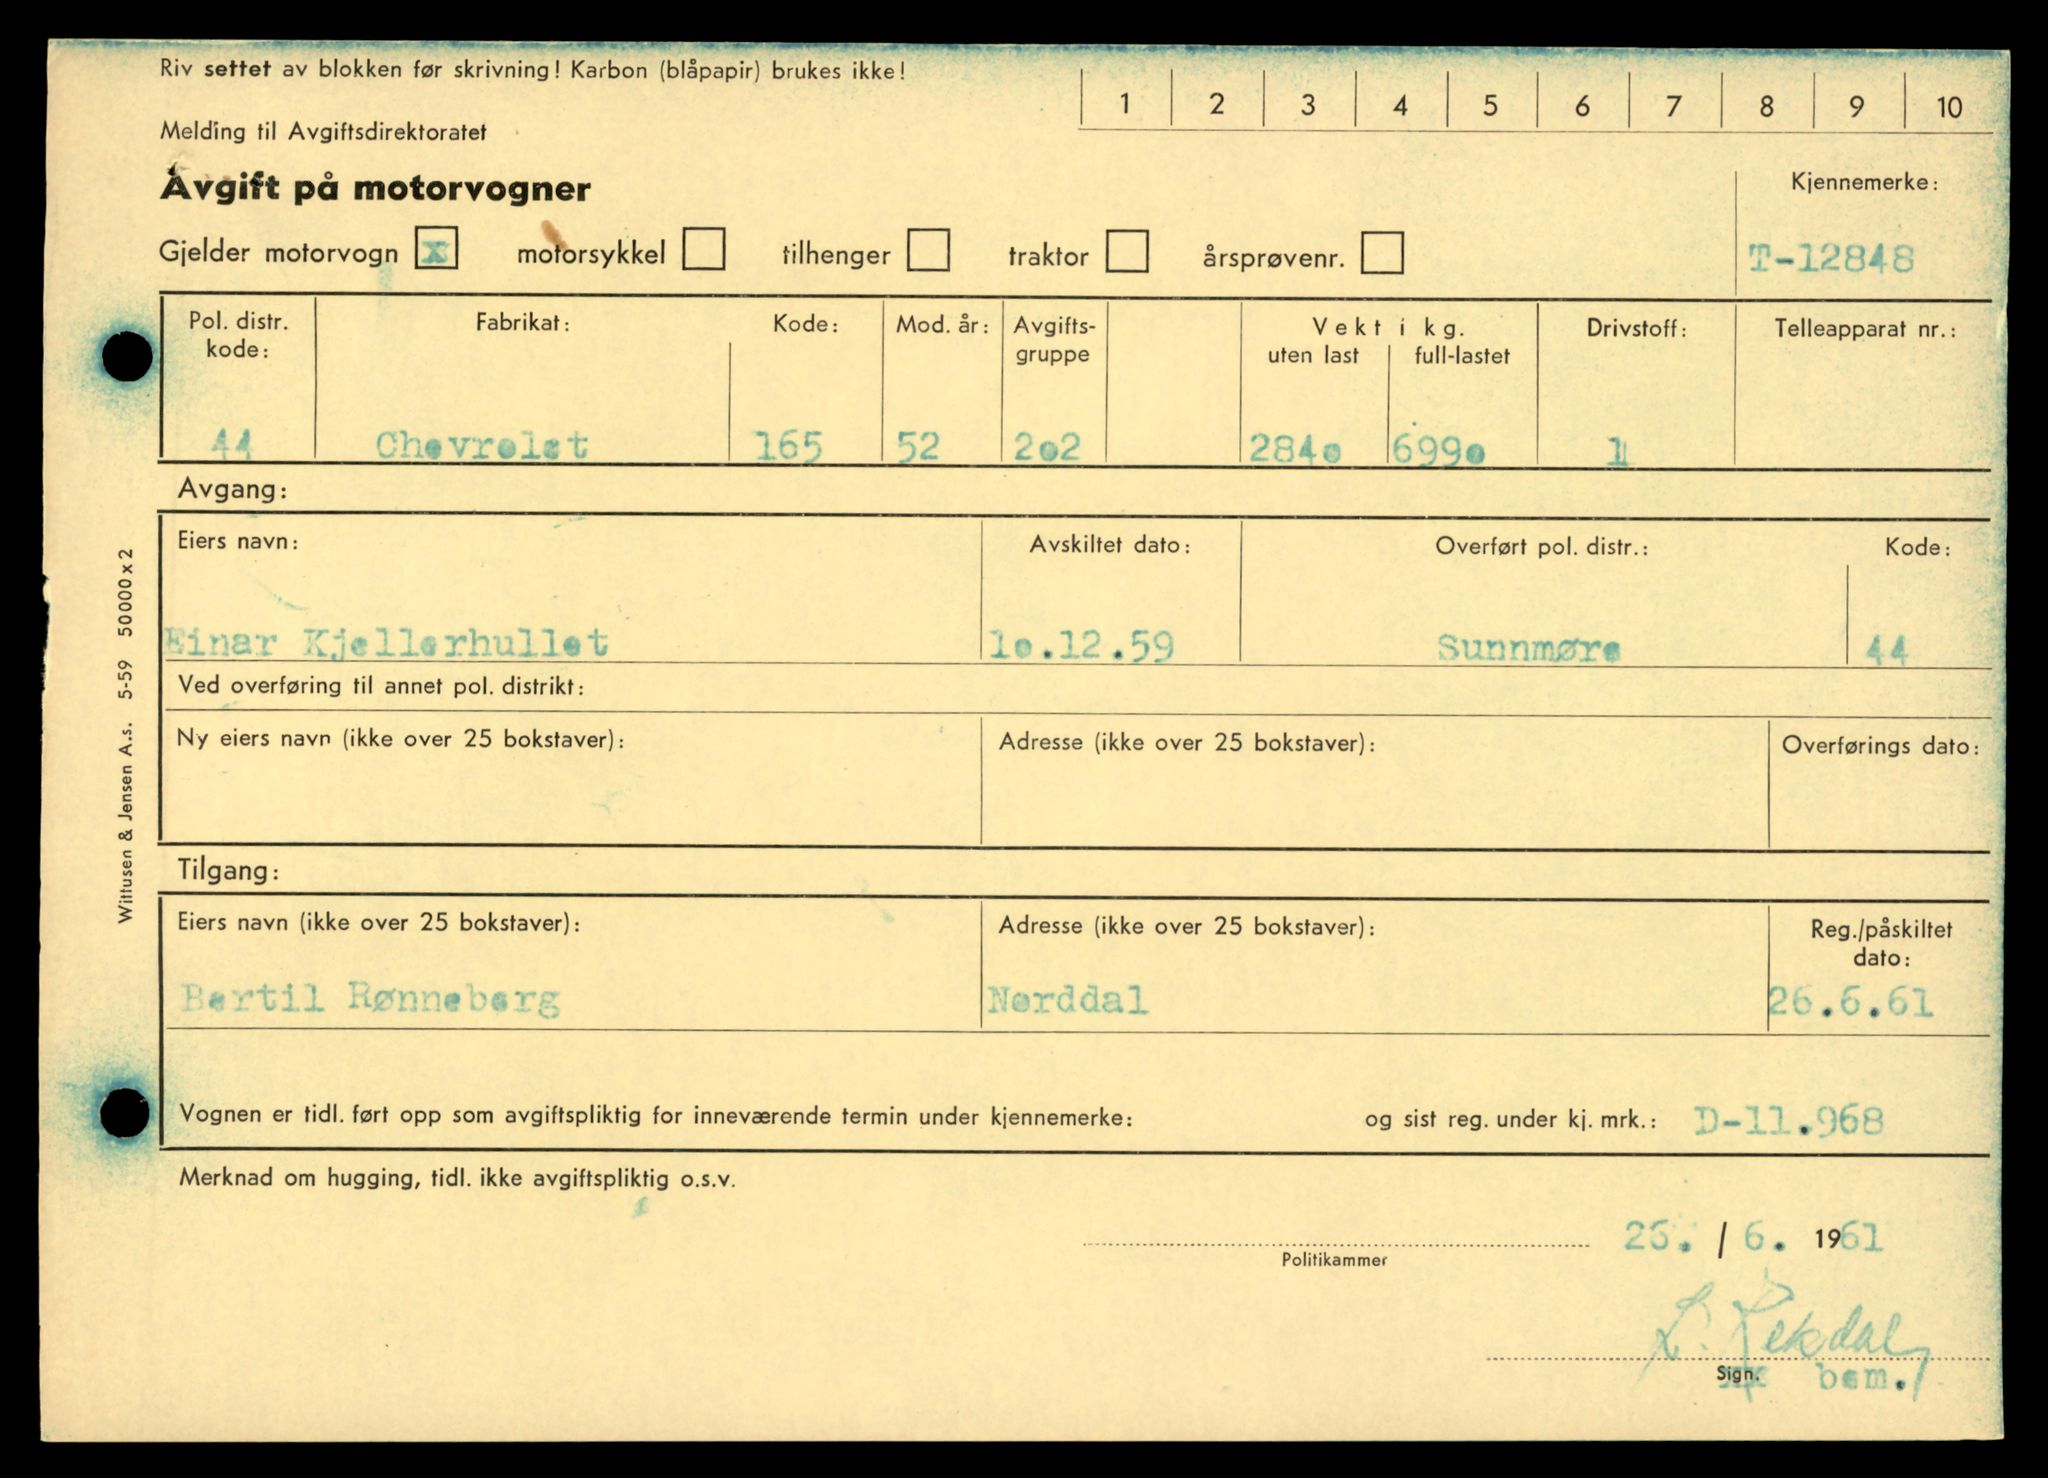 Riv settet av blokken før skrivning! Karbon (blåpapir) brukes ikke!
1 2 3 4 5 6 7 8 9 10
Melding til Avgiftsdirektoratet
Avgift på motorvogner
Kjennemerke:
Gjelder motorvogn x motorsykkel tilhenger traktor årsprøvenr.
T-12848
Pol. distr. kode: Fabrikat: Kode: Mod. år: Avgifts-gruppe Vekt i kg. uten last full-lastet Drivstoff: Telleapparat nr.:
44 Chevrolet 165 52 2o2 284o 699o 1
Avgang:
Eiers navn: Avskiltet dato: Overført pol. distr.: Kode:
Einar Kjellerhullet 1o.12.59 Sunnmøre 44
Ved overføring til annet pol. distrikt:
Ny eiers navn (ikke over 25 bokstaver): Adresse (ikke over 25 bokstaver): Overførings dato:
Tilgang:
Eiers navn (ikke over 25 bokstaver): Adresse (ikke over 25 bokstaver): Reg./påskiltet dato:
Bertil Rønneberg Norddal 26.6.61
Vognen er tidl. ført opp som avgiftspliktig for inneværende termin under kjennemerke: og sist reg. under kj. mrk.: D-11.968
Merknad om hugging, tidl. ikke avgiftspliktig o.s.v.
26. / 6. 1961
Politikammer
L. Rekdal
Sign. bem.
Wittusen & Jensen A.s. 5-59 50000 x 2